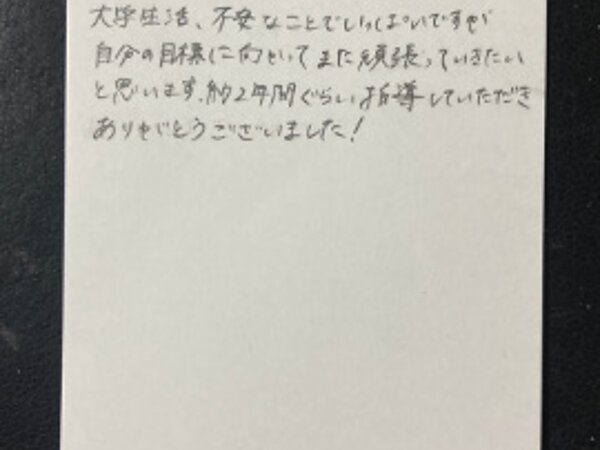 大学生活、不安なことでいっぱいですが
自分の目標に向かってまた頑張っていきたい
と思います。約2年間ぐらい指導していただき
ありがとうございました!